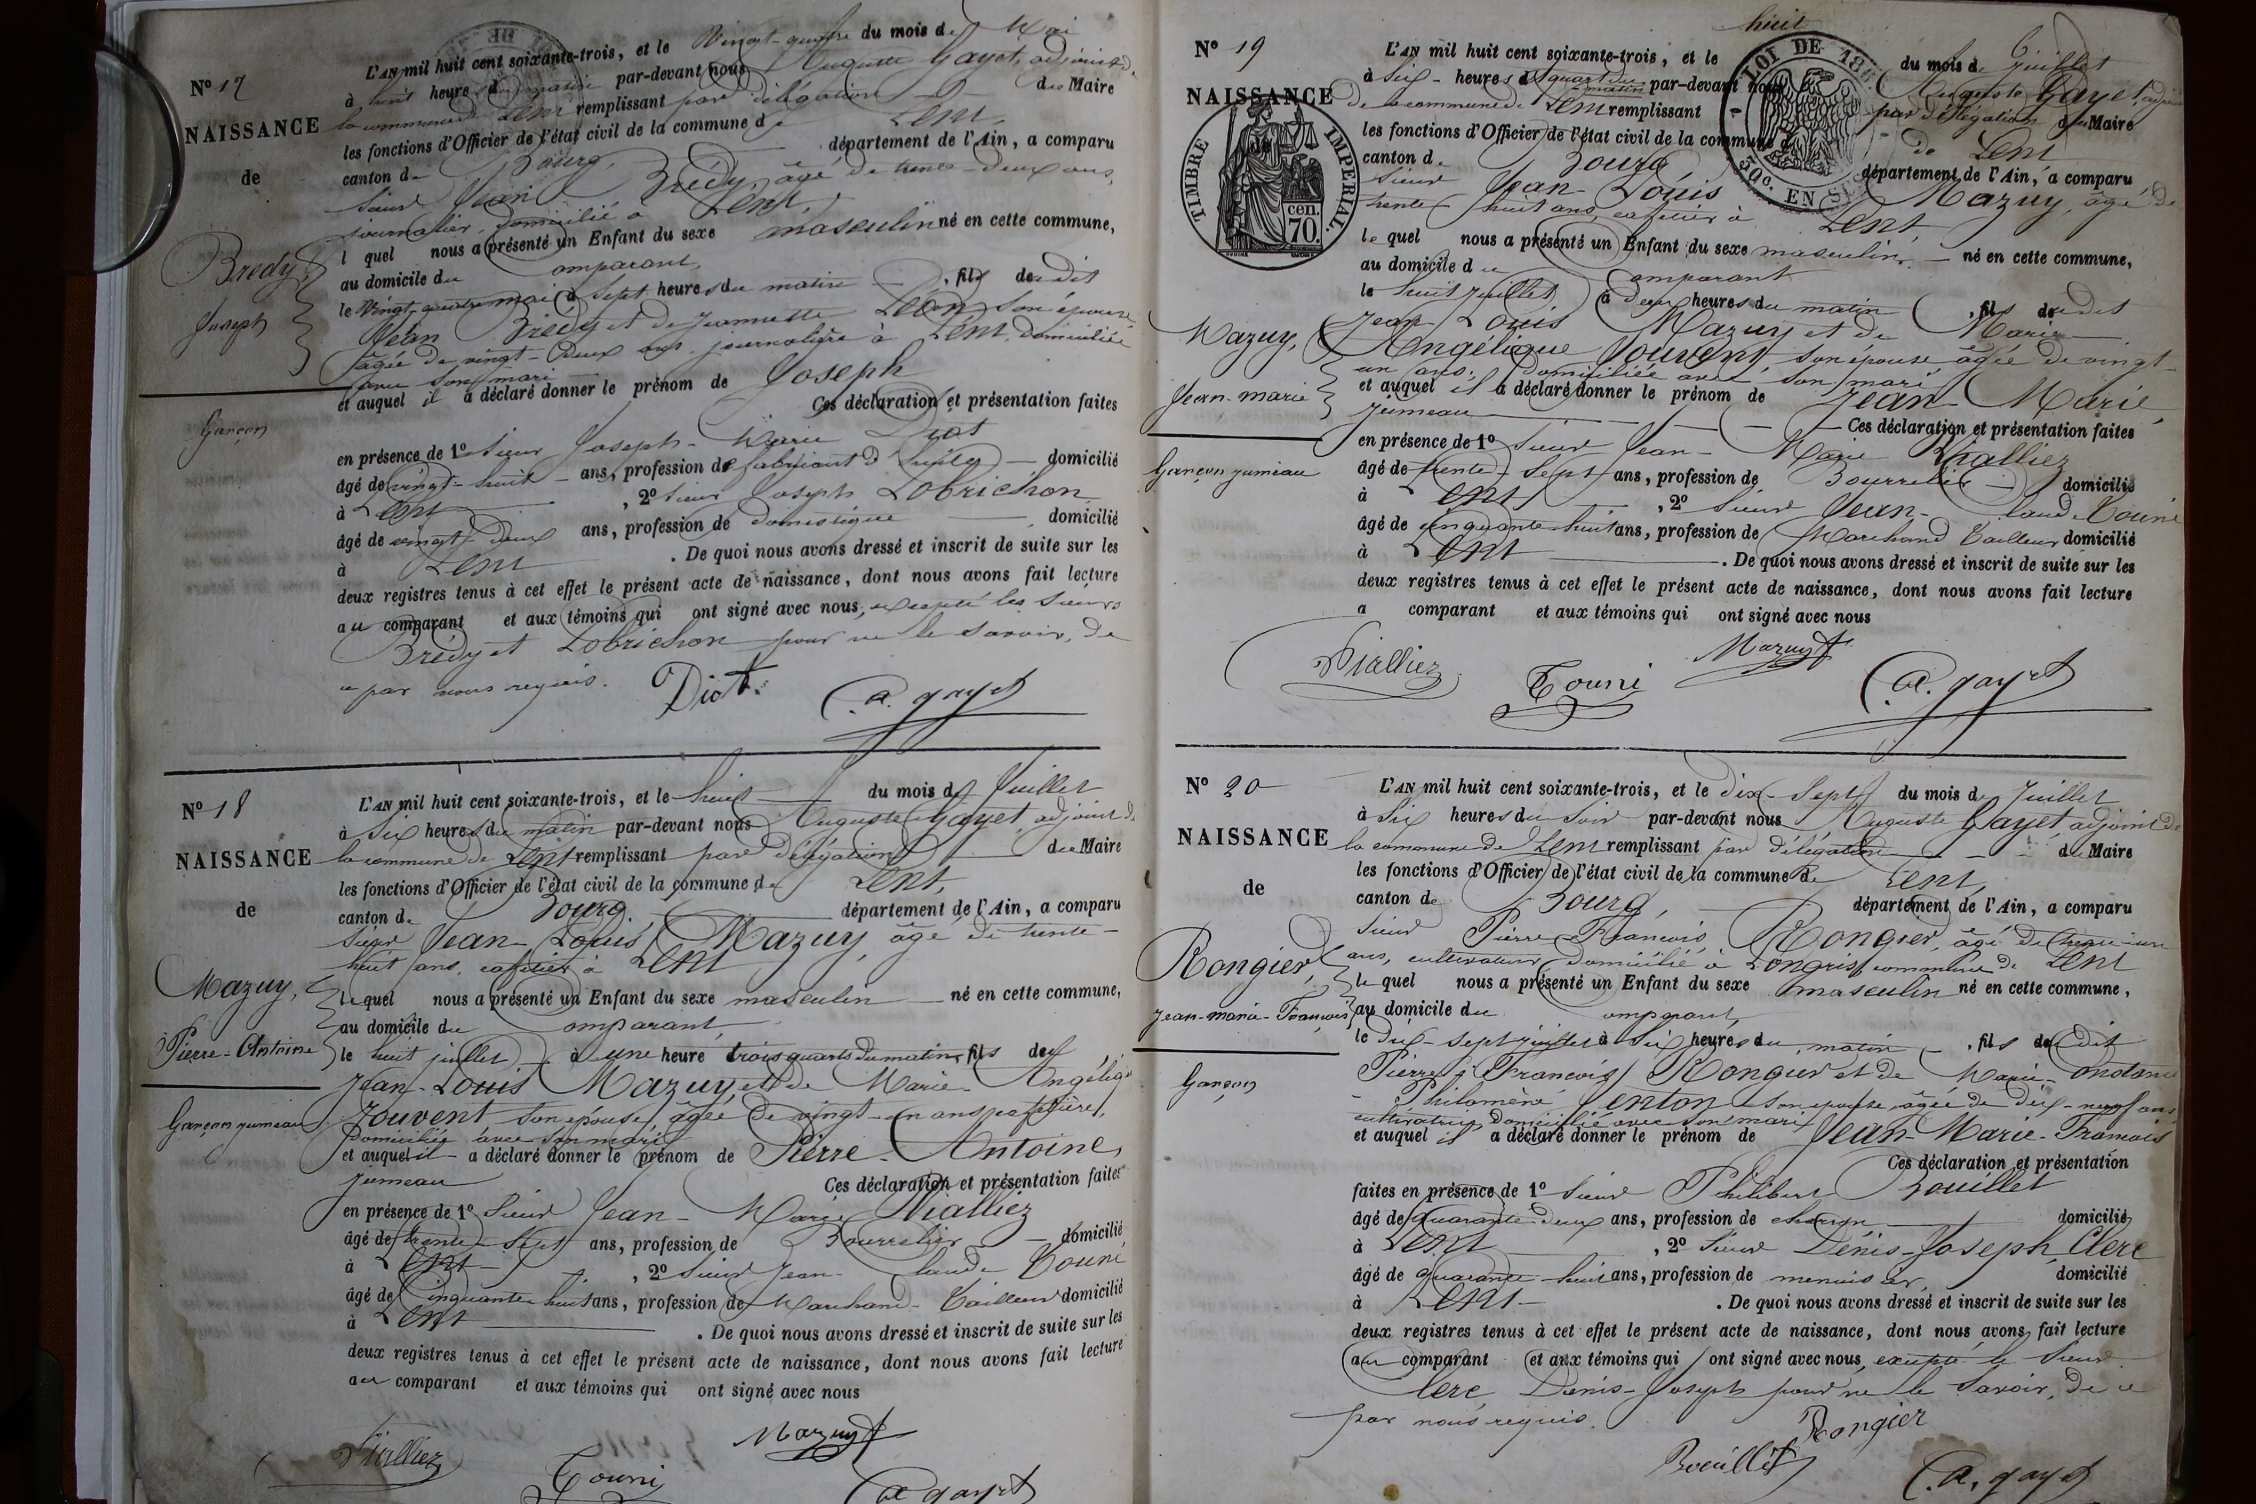 N° 17
NAISSANCE
de
Bredy
Joseph
Garçon
L'AN mil huit cent soixante-trois, et le Vingt-quatre du mois de Mai
à huit heures du matin par-devant nous Auguste Gayet, adjoint de
la commune de Lent remplissant par délégation du Maire
les fonctions d'Officier de l'état civil de la commune de Lent,
canton de Bourg, département de l'Ain, a comparu
Sieur Jean Brédy, âgé de trente-deux ans,
journalier, domicilié à Lent,
l quel nous a présenté un Enfant du sexe masculin né en cette commune,
au domicile du Comparant,
le Vingt-quatre mai à sept heures du matin, fils de dit
Jean Brédy et de Jeannette Léon son épouse
âgée de vingt-deux ans, journalière à Lent, domiciliée
avec son mari
et auquel il a déclaré donner le prénom de Joseph
Ces déclaration et présentation faites
en présence de 1° Sieur Joseph-Marie Diot
âgé de vingt-huit ans, profession de fabricant domicilié
à Lent, 2° Sieur Joseph Lobrichon
âgé de vingt-deux ans, profession de domestique domicilié
à Lent. De quoi nous avons dressé et inscrit de suite sur les
deux registres tenus à cet effet le présent acte de naissance, dont nous avons fait lecture
au comparant et aux témoins qui ont signé avec nous, excepté les Sieurs
Brédy et Lobrichon pour ne le savoir, de
ce par nous requis.
Diot. a. gayet
N° 18
NAISSANCE
de
Mazuy,
Pierre-Antoine
Garçon jumeau
L'AN mil huit cent soixante-trois, et le huit du mois de Juillet
à Six heures du matin par-devant nous Auguste Gayet, adjoint de
la commune de Lent remplissant par délégation du Maire
les fonctions d'Officier de l'état civil de la commune de Lent,
canton de Bourg, département de l'Ain, a comparu
Sieur Jean-Louis Mazuy, âgé de trente-
huit ans, cafetier à Lent
lequel nous a présenté un Enfant du sexe masculin né en cette commune,
au domicile du Comparant,
le huit juillet à une heure trois quarts du matin, fils de
Jean-Louis Mazuy, et de Marie-Angélique
Jouvent son épouse, âgée de vingt-un ans cafetière,
domiciliée avec son mari
et auquel il a déclaré donner le prénom de Pierre-Antoine,
jumeau Ces déclaration et présentation faites
en présence de 1° Sieur Jean-Marie Vialliez
âgé de trente-sept ans, profession de Bourrelier domicilié
à Lent, 2° Sieur Jean-Claude Touni
âgé de Cinquante-huit ans, profession de Marchand-Tailleur domicilié
à Lent. De quoi nous avons dressé et inscrit de suite sur les
deux registres tenus à cet effet le présent acte de naissance, dont nous avons fait lecture
au comparant et aux témoins qui ont signé avec nous
Vialliez Touni Mazuy a gayet
N° 19
NAISSANCE
de
TIMBRE IMPÉRIAL.
cen. 70.
LOI DE 50c. EN SUS
Mazuy,
Jean-Marie
Garçon jumeau
huit
L'AN mil huit cent soixante-trois, et le du mois de Juillet
à Six heures du matin par-devant nous Auguste Gayet, adjoint
de la commune de Lent remplissant par délégation du Maire
les fonctions d'Officier de l'état civil de la commune de Lent
canton de Bourg département de l'Ain, a comparu
Sieur Jean-Louis Mazuy, âgé de
trente-huit ans, cafetier à Lent,
le quel nous a présenté un Enfant du sexe masculin, né en cette commune,
au domicile du Comparant
le huit juillet, à deux heures du matin, fils de dit
Jean Louis Mazuy et de Marie
Angélique Jouvent, son épouse âgée de vingt-
un ans, domiciliée avec son mari
et auquel il a déclaré donner le prénom de Jean-Marie,
jumeau Ces déclaration et présentation faites
en présence de 1° Sieur Jean-Marie Vialliez
âgé de trente-sept ans, profession de Bourrelier domicilié
à Lent, 2° Sieur Jean-Claude Touni
âgé de cinquante-huit ans, profession de Marchand Tailleur domicilié
à Lent. De quoi nous avons dressé et inscrit de suite sur les
deux registres tenus à cet effet le présent acte de naissance, dont nous avons fait lecture
a comparant et aux témoins qui ont signé avec nous
Vialliez Touni Mazuy a. gayet
N° 20
NAISSANCE
de
Rongier,
Jean-Marie-François
Garçon
L'AN mil huit cent soixante-trois, et le dix-Sept du mois de Juillet
à Six heures du Soir par-devant nous Auguste Gayet, adjoint de
la commune de Lent remplissant par délégation du Maire
les fonctions d'Officier de l'état civil de la commune de Lent,
canton de Bourg, département de l'Ain, a comparu
Sieur Pierre-François Rongier, âgé de trente-un
ans, cultivateur, domicilié à Longris, commune de Lent
le quel nous a présenté un Enfant du sexe masculin né en cette commune,
au domicile du Comparant,
le Dix-sept juillet à Six heures du matin, fils du dit
Pierre François Rongier et de Marie-Constance
Philomène Venton son épouse, âgée de dix-neuf ans
cultivatrice, domiciliée avec son mari
et auquel il a déclaré donner le prénom de Jean-Marie-François
Ces déclaration et présentation
faites en présence de 1° Sieur Philibert Bouillet
âgé de quarante-deux ans, profession de charron domicilié
à Lent, 2° Sieur Dénis-Joseph Clerc
âgé de quarante-huit ans, profession de menuisier domicilié
à Lent. De quoi nous avons dressé et inscrit de suite sur les
deux registres tenus à cet effet le présent acte de naissance, dont nous avons fait lecture
au comparant et aux témoins qui ont signé avec nous, excepté le Sieur
Clerc Dénis-Joseph pour ne le savoir, de ce
par nous requis.
Rongier
Bouillet a. gayet